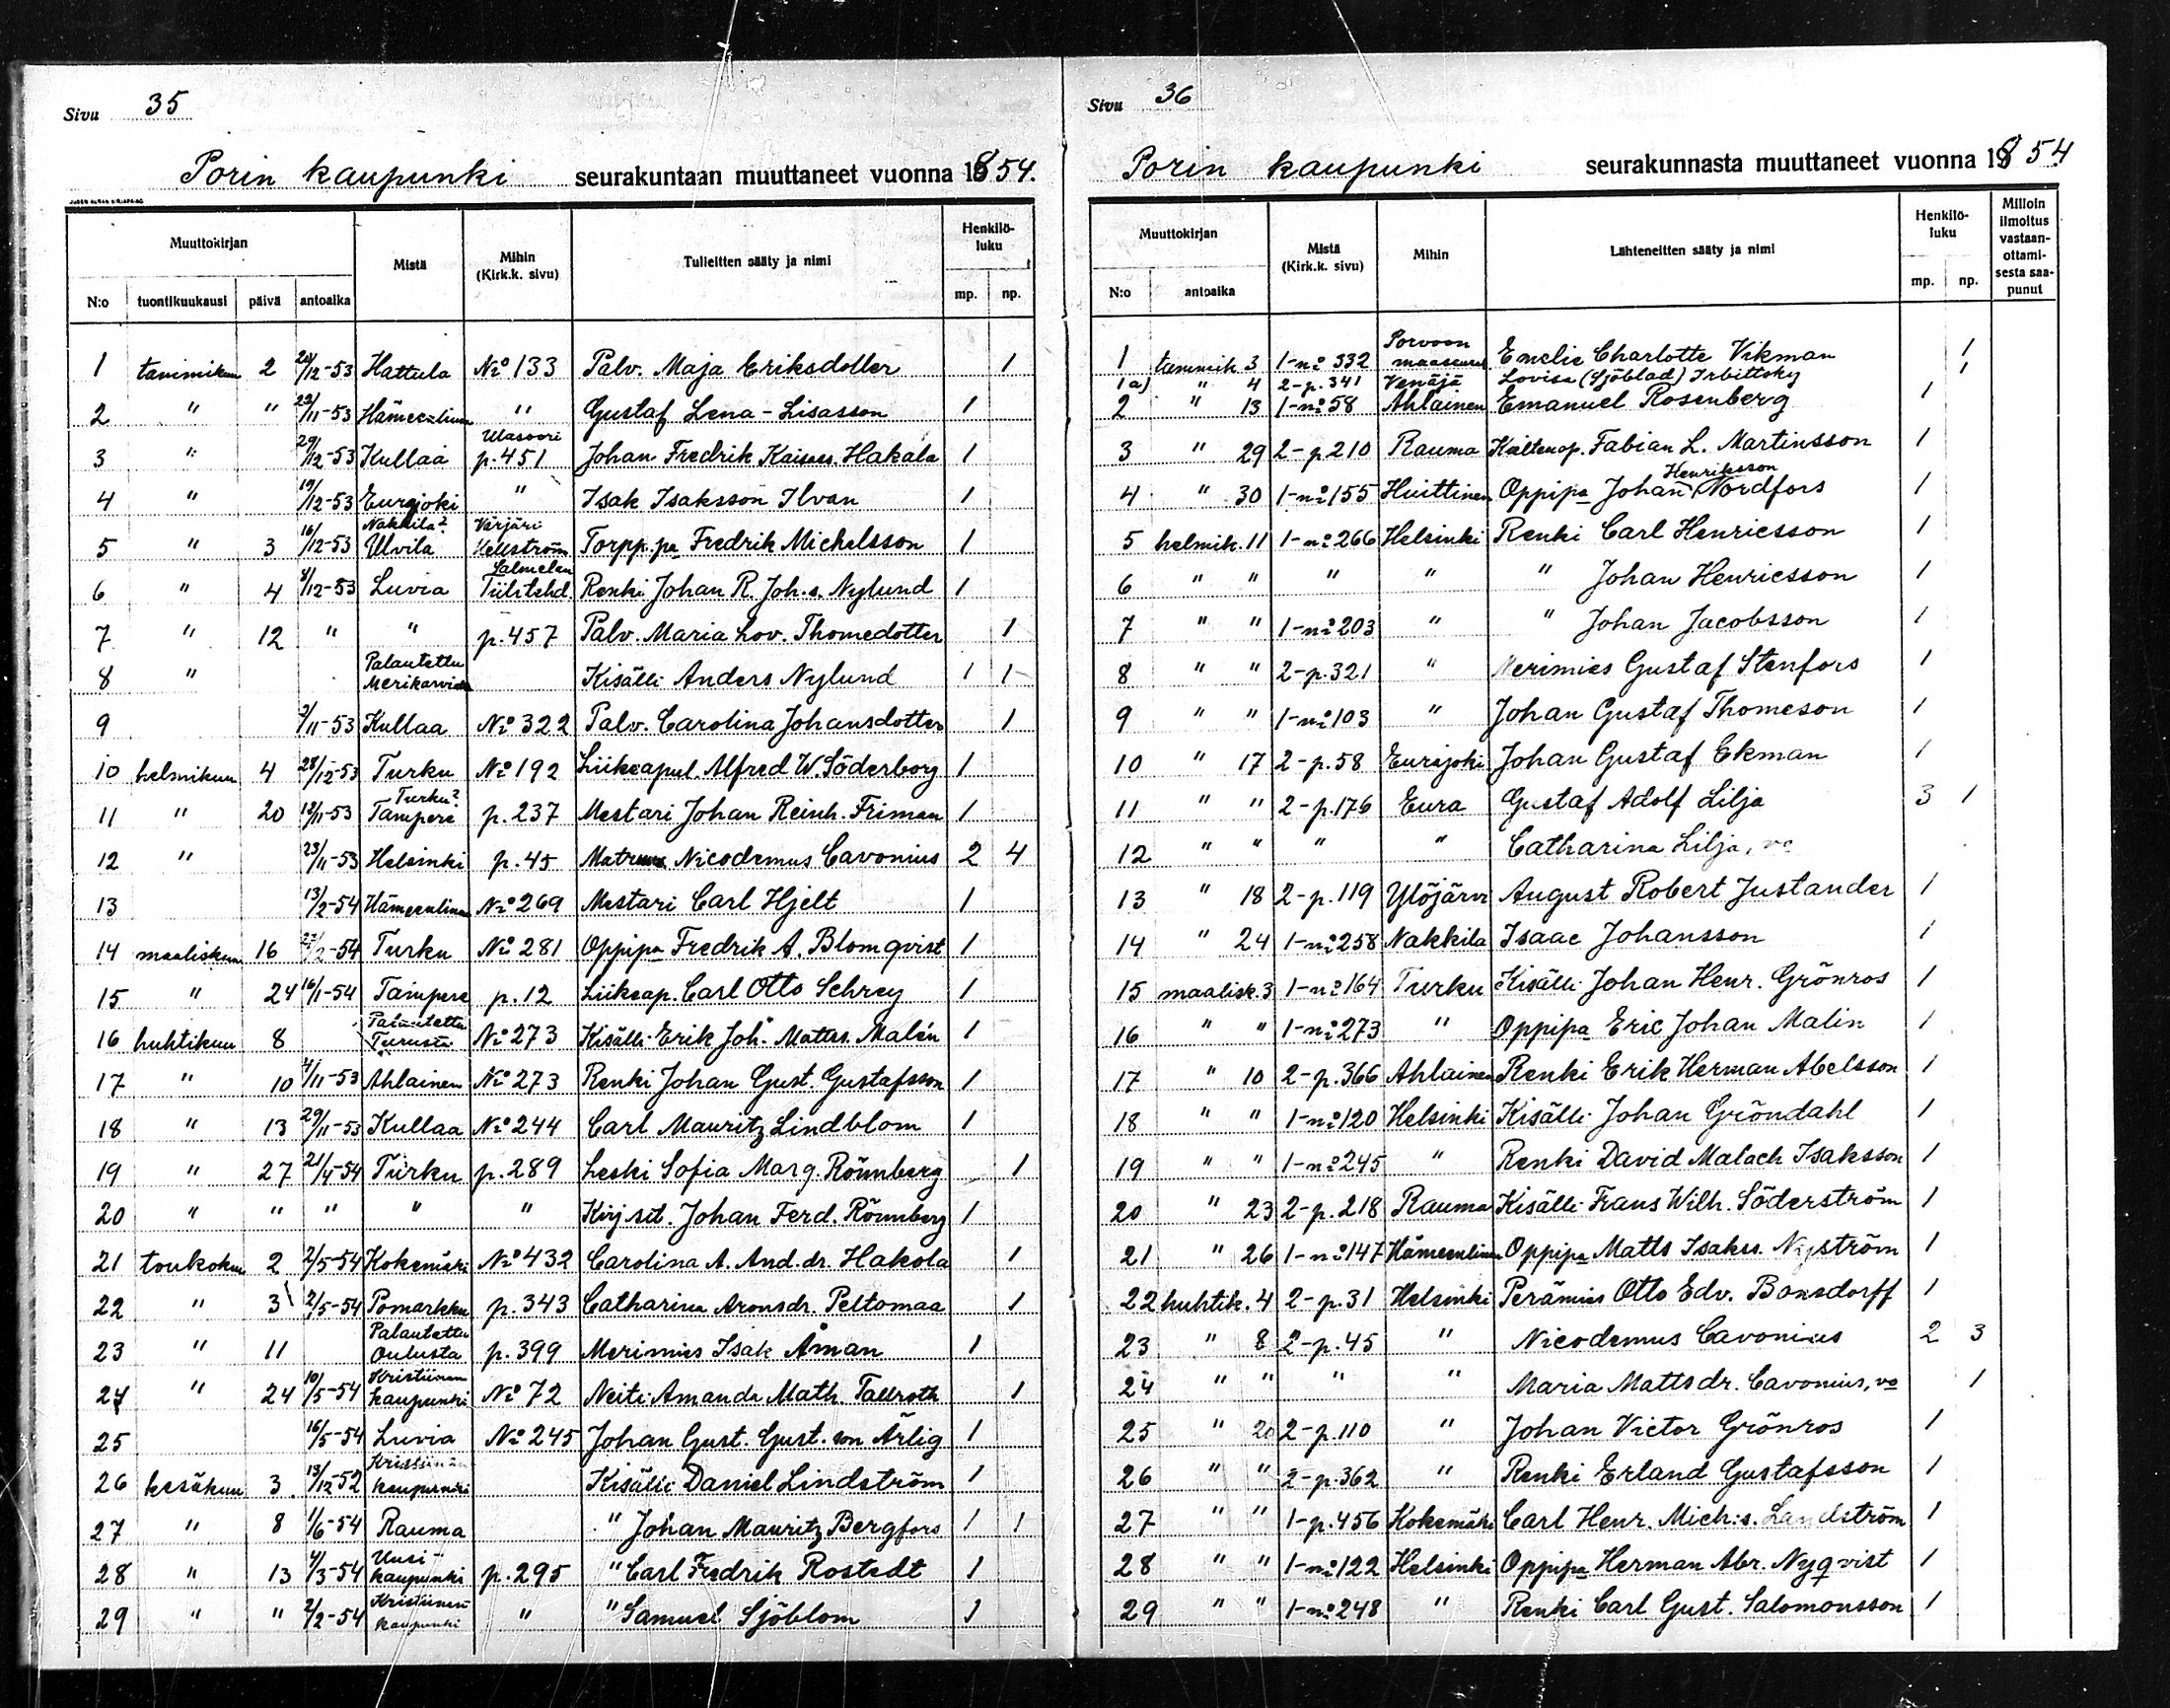 Sivu 35
Porin kaupunki seurakuntaan muuttaneet vuonna 1854.
Muuttokirjan Mistä Mihin (Kirk.k. sivu) Tulleitten sääty ja nimi Henkilö-luku
N:o tuontikuukausi päivä antoaika mp. np.
1 tammikuu 2 22/12-53 Hattula No 133 Palv. Maja Eriksdotter 1
2 " " 22/11-53 Hämeenlinna " Gustaf Lena-Lisasson 1
3 " 29/12-53 Kullaa Ulasoori p.451 Johan Fredrik Kaisas. Hakala 1
4 " 19/12-53 Eurajoki " Isak Isaksson Ilvan 1
5 " 3 16/12-53 Nakkila? Ulvila Värjäri Hellström Torpp.pa Fredrik Michelsson 1
6 " 4 8/12-53 Luvia Salmelan Tiilitehd. Renki Johan R. Joh.s. Nylund 1
7 " 12 " " p.457 Palv. Maria Lov. Thomedotter 1
8 " Palautettu Merikarvia Kisälli Anders Nylund 1 1
9 2/11-53 Kullaa No 322 Palv. Carolina Johansdotter 1
10 helmikuu 4 28/12-53 Turku No 192 Liikeapul. Alfred W. Söderborg 1
11 " 20 12/11-53 Turku? Tampere p.237 Mestari Johan Reinh. Friman 1
12 " 23/11-53 Helsinki p.45 Nicodemus Cavonius 2 4
13 13/2-54 Hämeenlinna No 269 Mestari Carl Hjelt 1
14 maaliskuu 16 27/2-54 Turku No 281 Oppipa Fredrik A. Blomqvist 1
15 " 24 16/1-54 Tampere p.12 Liikeap. Carl Otto Schrey 1
16 huhtikuu 8 Palautettu Turusta No 273 Kisälli Erik Joh. Mattss. Malén 1
17 " 10 4/11-53 Ahlainen No 273 Renki Johan Gust. Gustafsson 1
18 " 13 29/11-53 Kullaa No 244 Carl Mauritz Lindblom 1
19 " 27 21/4-54 Turku p.289 Leski Sofia Marg. Rönnberg 1
20 " " " " " Kirj.sit. Johan Ferd. Rönnberg 1
21 toukokuu 2 2/5-54 Kokemäki No 432 Carolina A. And.dr. Hakola 1
22 " 3 2/5-54 Pomarkku p.343 Catharina Aronsdr. Peltomaa 1
23 " 11 Palautettu Oulusta p.399 Merimies Isak Åman 1
24 " 24 10/5-54 Kristiinan kaupunki No 72 Neiti Amanda Math. Tallroth 1
25 16/5-54 Luvia No 245 Johan Gust. Gust.son Ärlig 1
26 kesäkuu 3 13/12-52 Kristiinan kaupunki Kisälli Daniel Lindström 1
27 " 8 1/6-54 Rauma " Johan Mauritz Bergfors 1 1
28 " 13 4/3-54 Uusi-kaupunki p.295 " Carl Fredrik Rostedt 1
29 " " 2/2-54 Kristiinan kaupunki " " Samuel Sjöblom 1
Sivu 36
Porin kaupunki seurakunnasta muuttaneet vuonna 1854
Muuttokirjan Mistä (Kirk.k. sivu) Mihin Lähteneitten sääty ja nimi Henkilö-luku Milloin ilmoitus vastaan-ottami-sesta saa-punut
N:o antoaika mp. np.
1 tammik. 3 1-no 332 Porvoon maaseurak. Emelie Charlotte Vikman 1
1a) " 4 2-p.341 Venäjä Lovisa (Sjöblad) Irbittsky 1
2 " 13 1-no 58 Ahlainen Emanuel Rosenberg 1
3 " 29 2-p.210 Rauma Kultenop. Fabian L. Martinsson 1
4 " 30 1-no 155 Huittinen Oppipa Johan Henriksson Nordfors 1
5 helmik. 11 1-no 266 Helsinki Renki Carl Henricsson 1
6 " " " " " Johan Henricsson 1
7 " " 1-no 203 " " Johan Jacobsson 1
8 " " 2-p.321 " Merimies Gustaf Stenfors 1
9 " " 1-no 103 " Johan Gustaf Thomeson 1
10 " 17 2-p.58 Eurajoki Johan Gustaf Ekman 1
11 " " 2-p.176 Eura Gustaf Adolf Lilja 3 1
12 " " " " Catharina Lilja, vo
13 " 18 2-p.119 Ylöjärvi August Robert Justander 1
14 " 24 1-no 258 Nakkila Isaac Johansson 1
15 maalisk. 3 1-no 164 Turku Kisälli Johan Henr. Grönros 1
16 " " 1-no 273 " Oppipa Eric Johan Malin 1
17 " 10 2-p.366 Ahlainen Renki Erik Herman Abelsson 1
18 " " 1-no 120 Helsinki Kisälli Johan Gröndahl 1
19 " " 1-no 245 " Renki David Malach Isaksson 1
20 " 23 2-p.218 Rauma Kisälli Frans Wilh. Söderström 1
21 " 26 1-no 147 Hämeenlinna Oppipa Matts Isakss. Nyström 1
22 huhtik. 4 2-p.31 Helsinki Perämies Otto Edv. Bonsdorff 1
23 " 8 2-p.45 " Nicodemus Cavonius 2 3
24 " " " " Maria Mattsdr. Cavonius, vo 1
25 " 20 2-p.110 " Johan Victor Grönros 1
26 " " 2-p.362 " Renki Erland Gustafsson 1
27 " " 1-p.456 Kokemäki Carl Henr. Mich:s. Landström 1
28 " " 1-no 122 Helsinki Oppipa Herman Abr. Nyqvist 1
29 " " 1-no 248 " Renki Carl Gust. Salomonsson 1